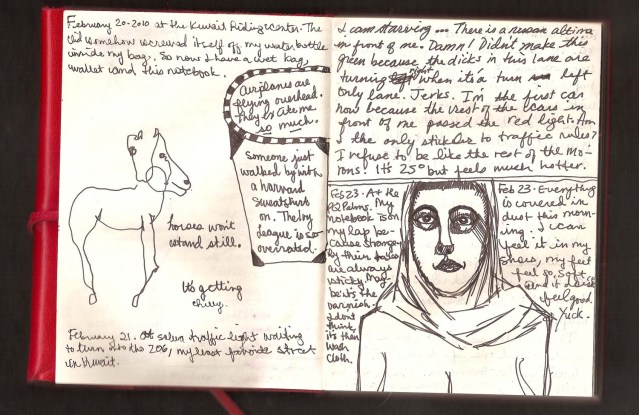 February 20·2010 at the Kuwait Riding Center. The
lid somehow screwed itself off my water bottle
inside my bag. So now I have a wet bag,
wallet and this notebook.
Airplanes are
flying overhead.
They irritate me
so much.
Someone just
walked by with
a harvard
sweatshirt
on. The ivy
League is so
overrated.
horses won't
stand still.
It's getting
chilly.
February 21. At salwa traffic light waiting
to turn into the 206, my least favorite street
in Kuwait.
I am starving... There is a nissan altima
in front of me. Damn! Didn't make this
green because the dicks in this lane are
turning right when it's a turn left
only lane. Jerks. I'm the first car
now because the rest of the cars in
front of me passed the red light. Am
I the only stickler to traffic rules?
I refuse to be like the rest of the mo-
rons! It's 25° but feels much hotter.
Feb 23. At the
Palms. My
notebook is on
my lap be-
cause
their tables
are always
sticky. May-
be it's the
varnish.
I don't
think,
it's their
wash
cloth.
Feb 23. Everything
is covered in
dust this morn-
ing. I can
feel it in my
shoes, my feet
feel so soft
and it doesn't
feel good.
Yuck.